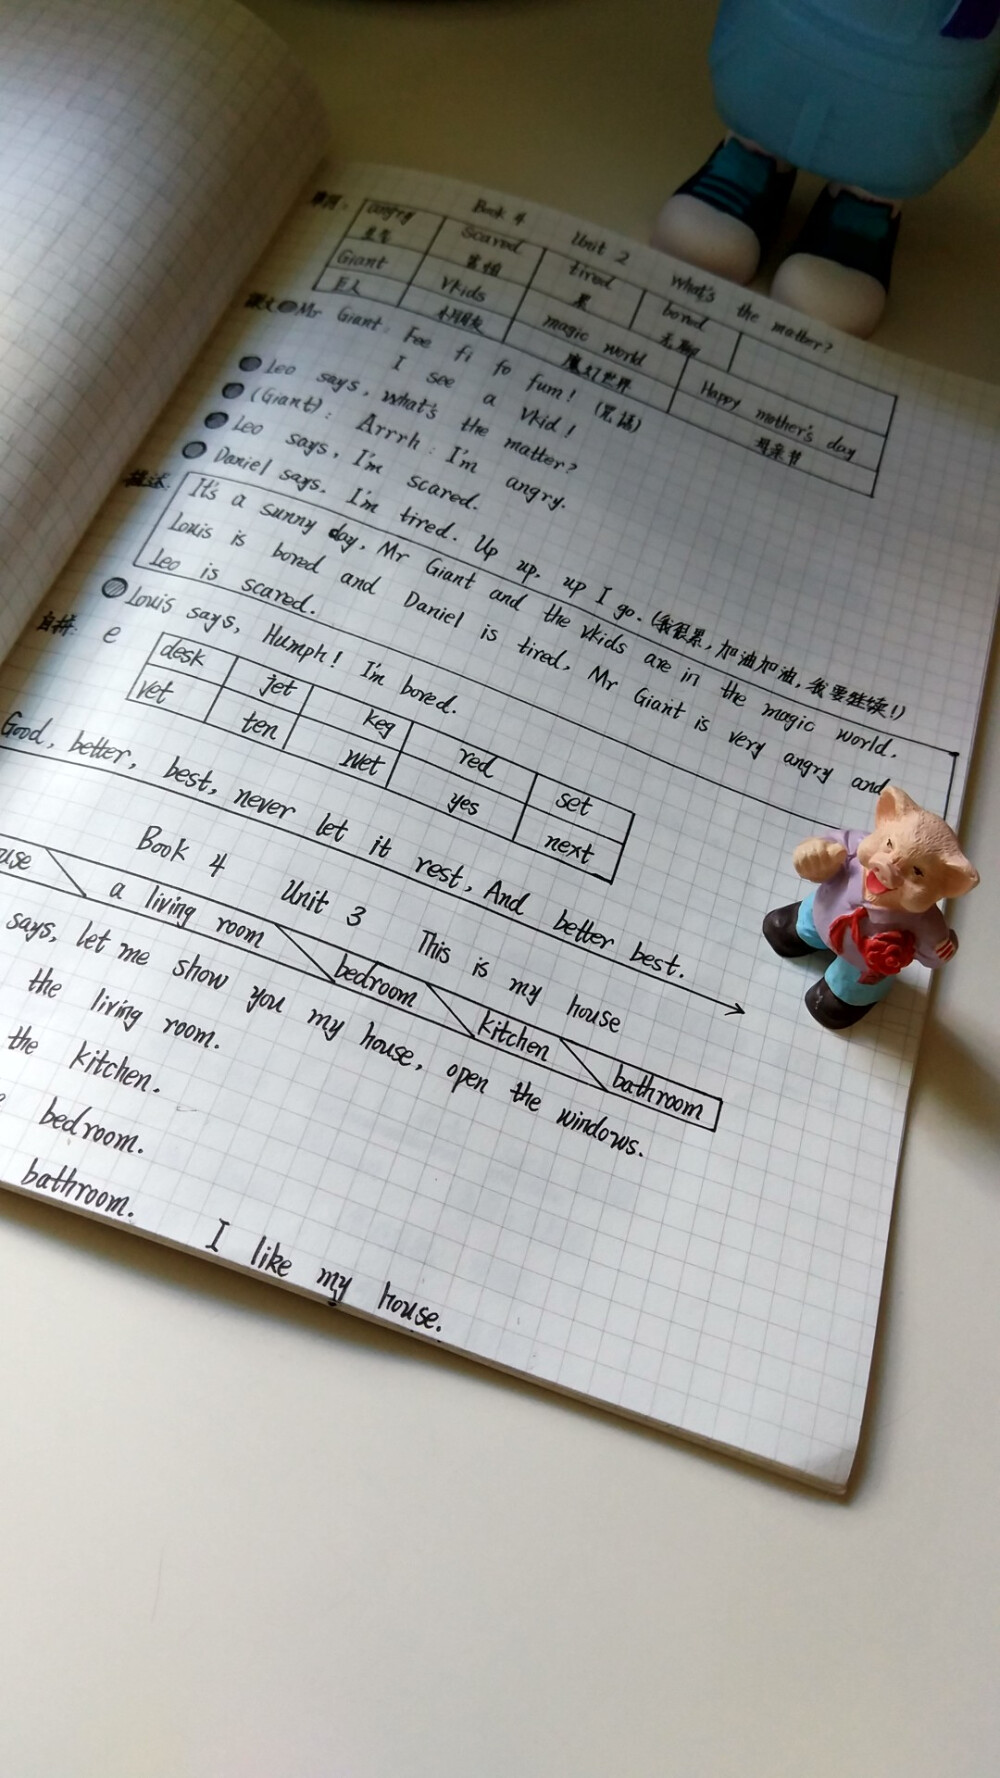 Book 4 Unit 2 What's the matter?
单词: angry scared tired bored
生气 害怕 累 无聊
Giant Vkids magic world Happy mother's day
巨人 小朋友 魔幻世界 母亲节
课文 Mr Giant: Fee fi fo fum! (咒语)
I see a Vkid!
Leo says, what's the matter?
(Giant): Arrrh: I'm angry.
Leo says, I'm scared.
Daniel says. I'm tired. Up up, up I go. (我很累,加油加油,我要继续!)
描述: It's a sunny day, Mr Giant and the vkids are in the magic world.
Louis is bored and Daniel is tired, Mr Giant is very angry and
Leo is scared.
Louis says, Humph! I'm bored.
自拼: e desk jet keg red set
vet ten wet yes next
Good, better, best, never let it rest, And better best.
Book 4 Unit 3 This is my house
a living room bedroom kitchen bathroom
says, let me show you my house, open the windows.
the living room.
the kitchen.
bedroom.
bathroom.
I like my house.